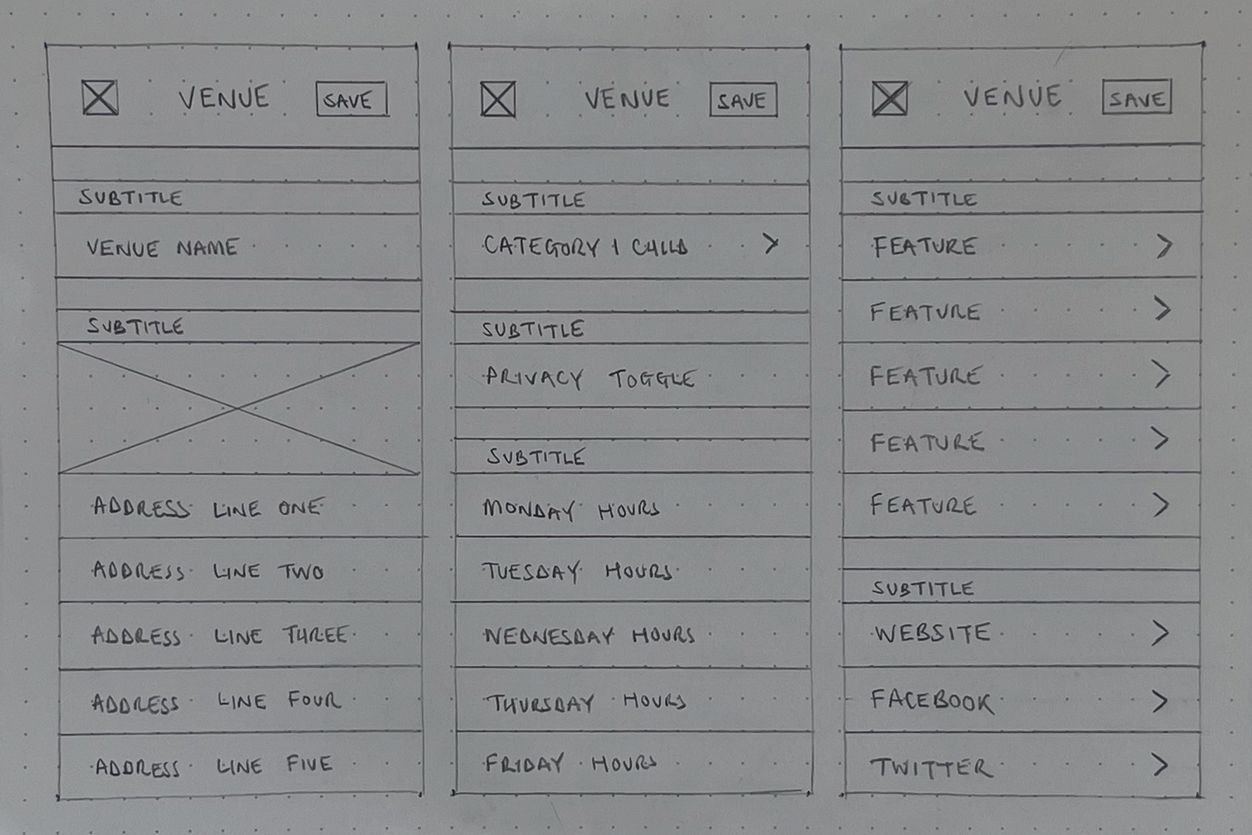 VENUE SAVE
SUBTITLE
VENUE NAME
SUBTITLE
ADDRESS LINE ONE
ADDRESS LINE TWO
ADDRESS LINE THREE
ADDRESS LINE FOUR
ADDRESS LINE FIVE
VENUE SAVE
SUBTITLE
CATEGORY 1 CHILD
SUBTITLE
PRIVACY TOGGLE
SUBTITLE
MONDAY HOURS
TUESDAY HOURS
WEDNESDAY HOURS
THURSDAY HOURS
FRIDAY HOURS
VENUE SAVE
SUBTITLE
FEATURE >
FEATURE >
FEATURE >
FEATURE >
FEATURE >
SUBTITLE
WEBSITE >
FACEBOOK >
TWITTER >